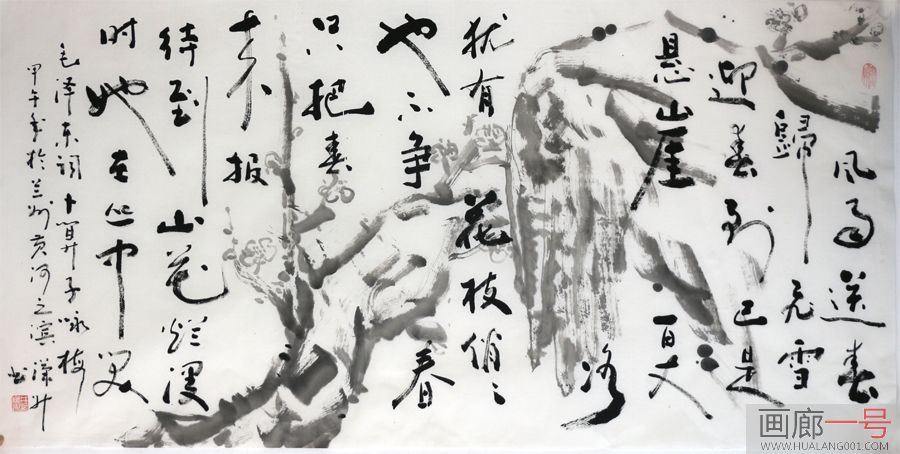 风雨送春
歸飞雪
迎春到已是
悬崖百丈
冰
犹有花枝俏々
也不争春
只把春
来报
待到山花烂漫
时她在丛中笑
毛泽东词卜算子咏梅
甲午年於兰州黄河之滨 书
画廊一号
WWW.HUALANG001.COM